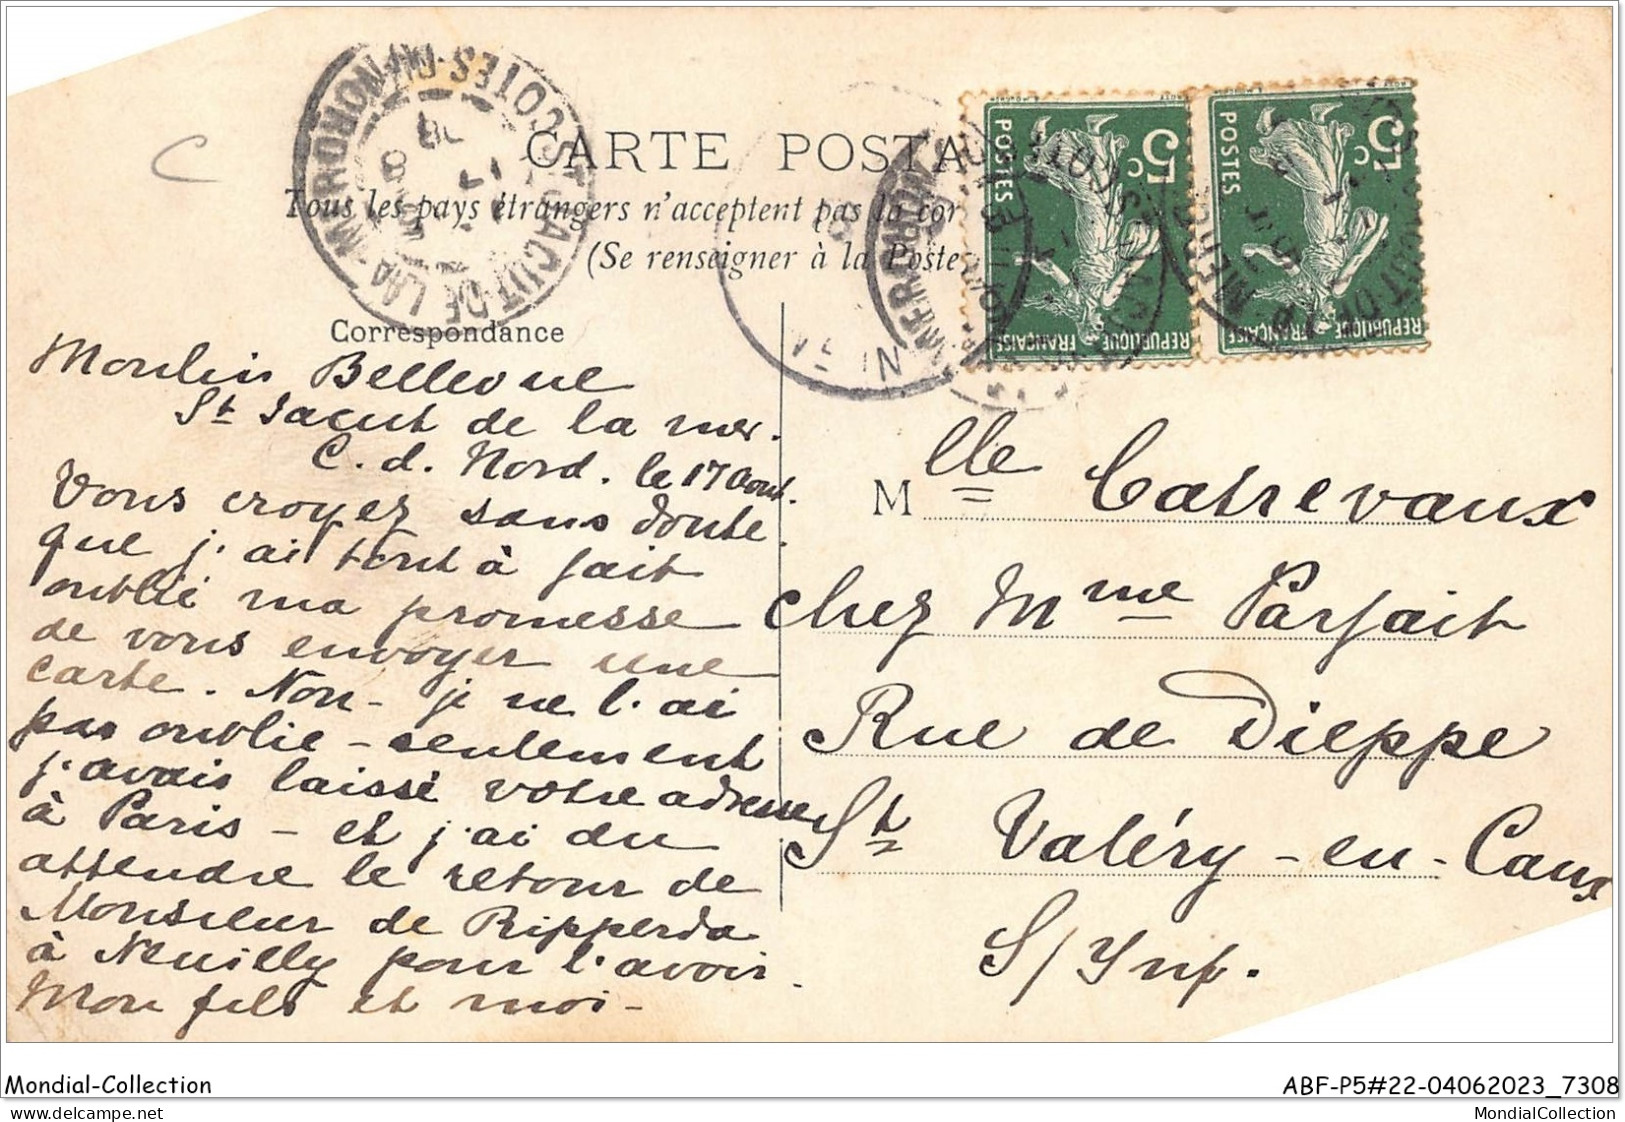 CARTE POSTA
Tous les pays étrangers n'acceptent pas la cor
(Se renseigner à la Poste
Correspondance
Moulin Bellevue
St Jacut de la mer.
C. d. Nord. le 17 Aout.
Vous croyez sans doute
que j'ai tout à fait
oublié ma promesse
de vous envoyer une
carte. Non - je ne l'ai
pas oublie - seulement
j'avais laissé votre adresse
à Paris - et j'ai du
attendre le retour de
Monsieur de Ripperda
à Neuilly pour l'avoir.
Mon fils et moi -
Mlle Catrevaux
chez Mme Parfait
Rue de Dieppe
St Valéry-en-Caux
S/Inf.
5c
POSTES
REPUBLIQUE FRANÇAISE
5c
POSTES
REPUBLIQUE FRANÇAISE
ST JACUT-DE-LA-MER CÔTES-DU-NORD
Mondial-Collection
ABF-P5#22-04062023_7308
MondialCollection